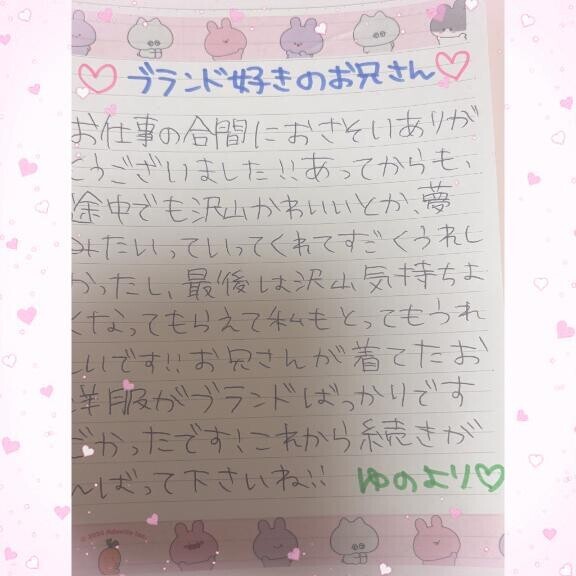 ブランド好きのお兄さん
お仕事の合間におさそいありが
とうございました!!あってからも、
途中でも沢山かわいいとか、夢
みたいっていってくれてすごくうれし
かったし、最後は沢山気持ちよ
くなってもらえて私もとってもうれ
しいです!!お兄さんが着てたお
洋服がブランドばっかりです
ごかったです!これから続きが
んばって下さいね!! ゆのより